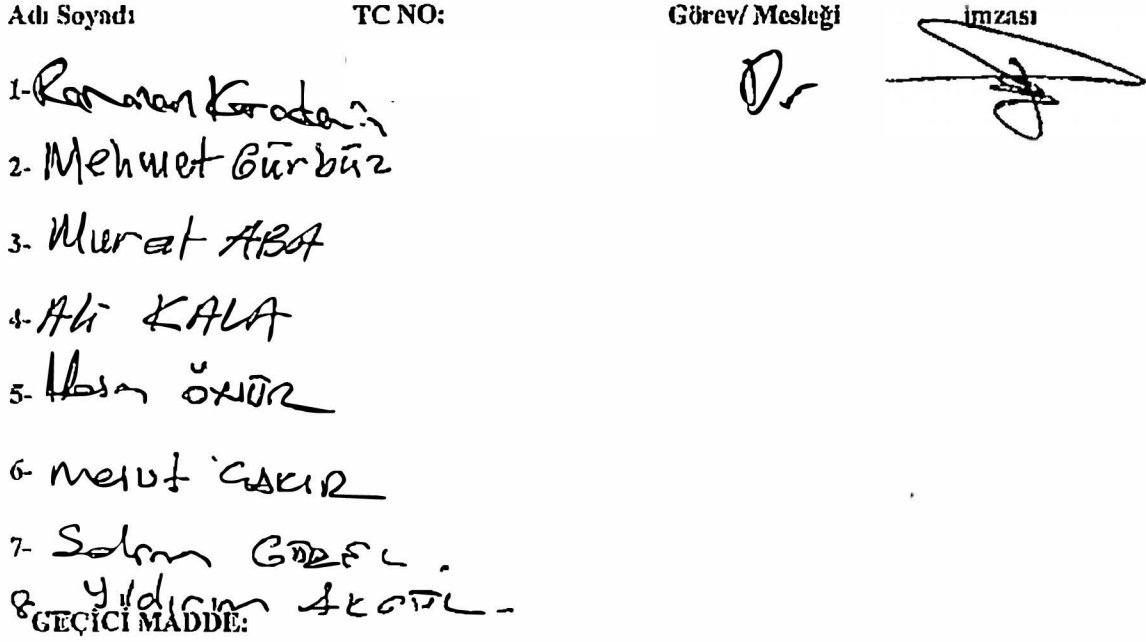 Adı Soyadı TC NO: Görev/ Mesleği İmzası
1- Ramazan Dr
2- Mehmet Gürbüz
3- Murat ABA
4- Ali KALA
5- Hasan ÖNÜR
6- Mesut ÇAKIR
7- GÜZEL.
8- Yıldırım AKGÜL-
GEÇİCİ MADDE: